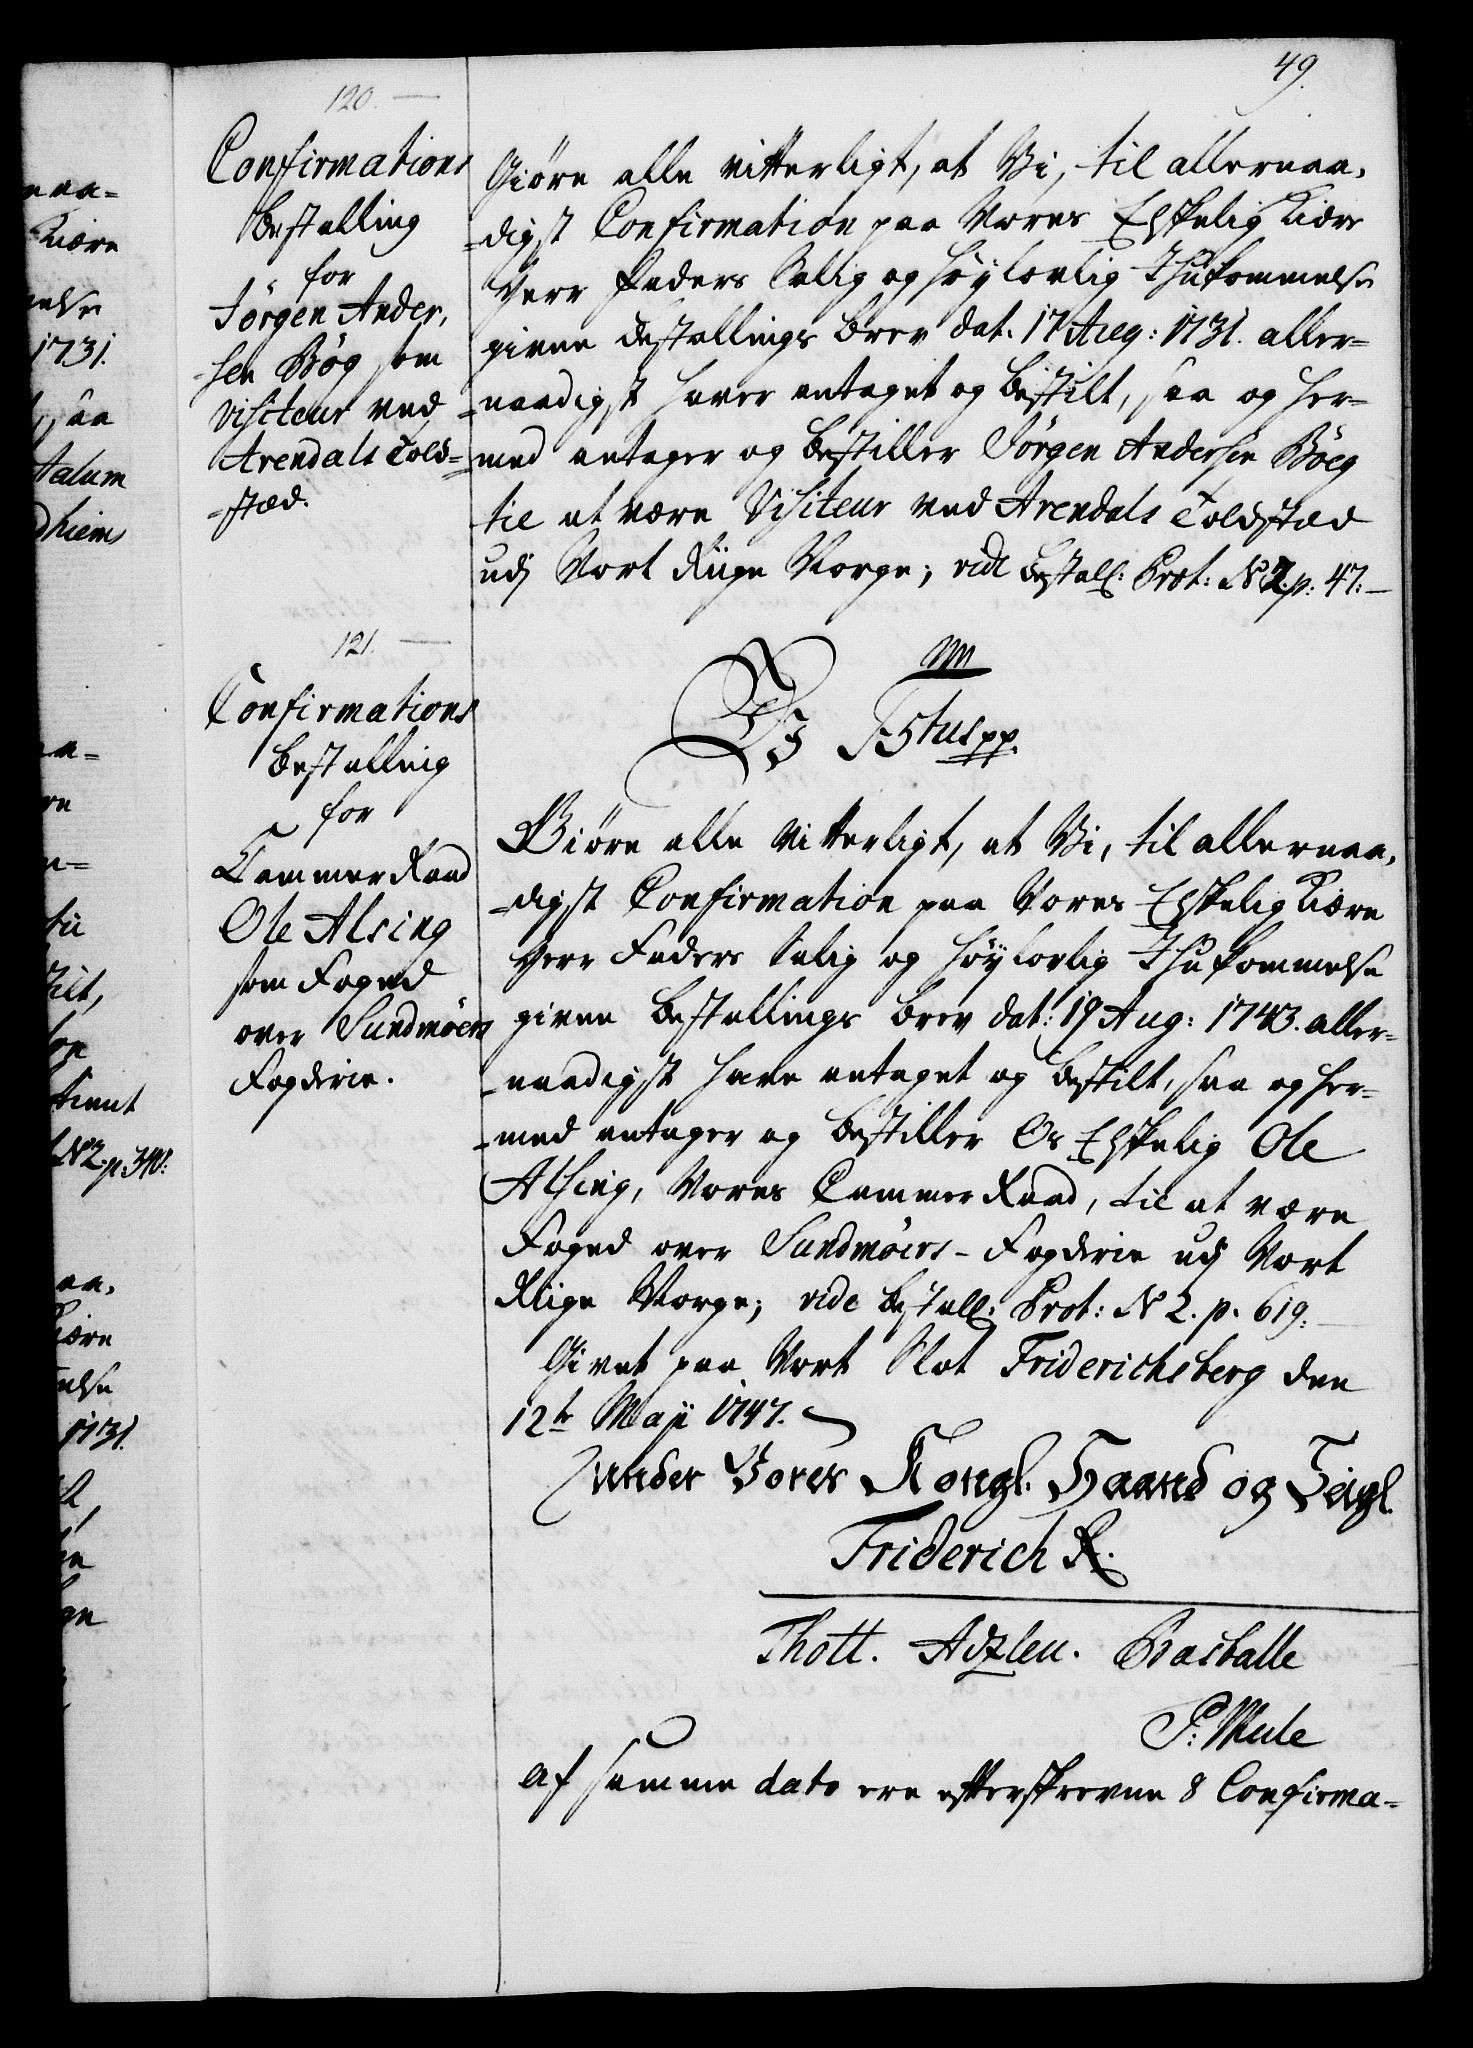 49.
120.
Confirmations
Bestalling
for
Jörgen Ander,
-sen Bög som
Visiteur ved
Arendals Told-
-stæd.
Giöre alle vitterligt, at Vi, til allernaa,
-digst Confirmation paa Vores Elskelig Kiære
Herr Faders Salig og Höylovlig Ihukommelse
givne Bestallings Brev dat. 17 Aug: 1731. aller-
-naadigst haver antaget og bestilt, saa og her-
-med antager og bestiller Jörgen Andersen Böeg
til at være Visiteur ved Arendals Toldstæd
udj Vort Riige Norge; vide Bestall: Prot: N 2. p: 47:
121.
Confirmations
Bestalling
for
Cammer Raad
Ole Alsing
som Foged
over Sundmöers
Fogderie.
Vi F5tus pp.
Giöre alle Vitterligt, at Vi, til allernaa,
-digst Confirmation paa Vores Elskelig Kiære
Herr Faders Salig og Höylovlig Ihukommelse
givne Bestallings Brev dat: 19 Aug: 1743. aller-
-naadigst have antaget og bestilt, saa og her-
-med antager og bestiller Os Elskelig Ole
Alsing, Vores Cammer Raad, til at være
Foged over Sundmöers-Fogderie udj Vort
Riige Norge; vide Bestall: Prot: N 2. p. 619:
Givet paa Vort Slot Friderichsberg den
12te Maji 1747.
Under Vores Kongl. Haand og Seigl.
Friderich R.
Thott. Adzleu. Braëballe
P: Mule
Af samme dato ere efterskrevne 8 Confirma-